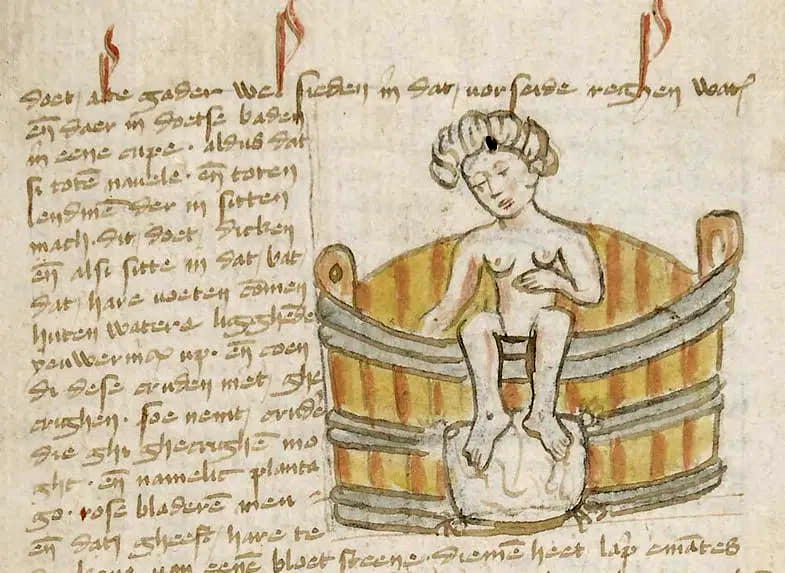 doet alte gader wel sieden in dat vorseide reghen wat
eñ daer in doetse baden
in eene cupe · aldus dat
si totē navele · eñ toten
lendinē der in sitten
mach · dit doet dicken
eñ alsi sitte in dat bat
dat hare voeten comen
huten watere ligghēde
yeuwerincx up · eñ coen
di dese cruden niet ghe
crighen · soe nemt crudē
die ghi ghecrighē mo
ght · eñ namelic planta
go · rose bladerē men
eñ dat gheeft hare te
van eenē bloet steene · diemē heet lap emates